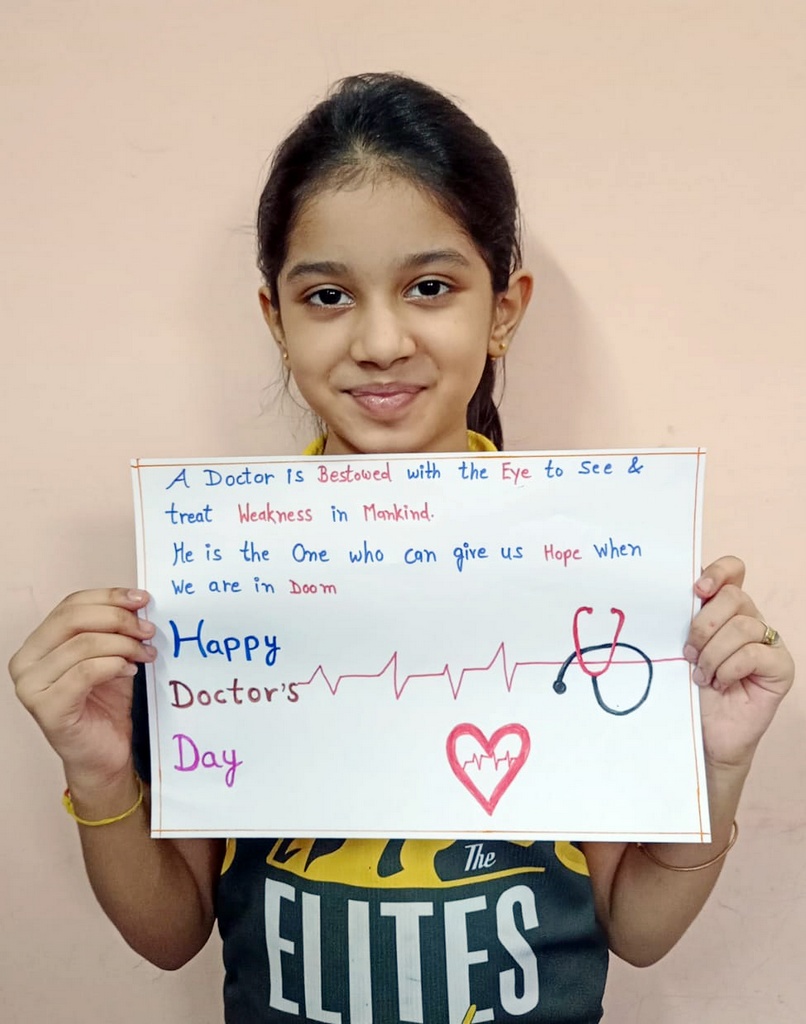 A Doctor is Bestowed with the Eye to see &
treat Weakness in Mankind.
He is the One who can give us Hope when
we are in Doom
Happy
Doctor's
Day
The
ELITES